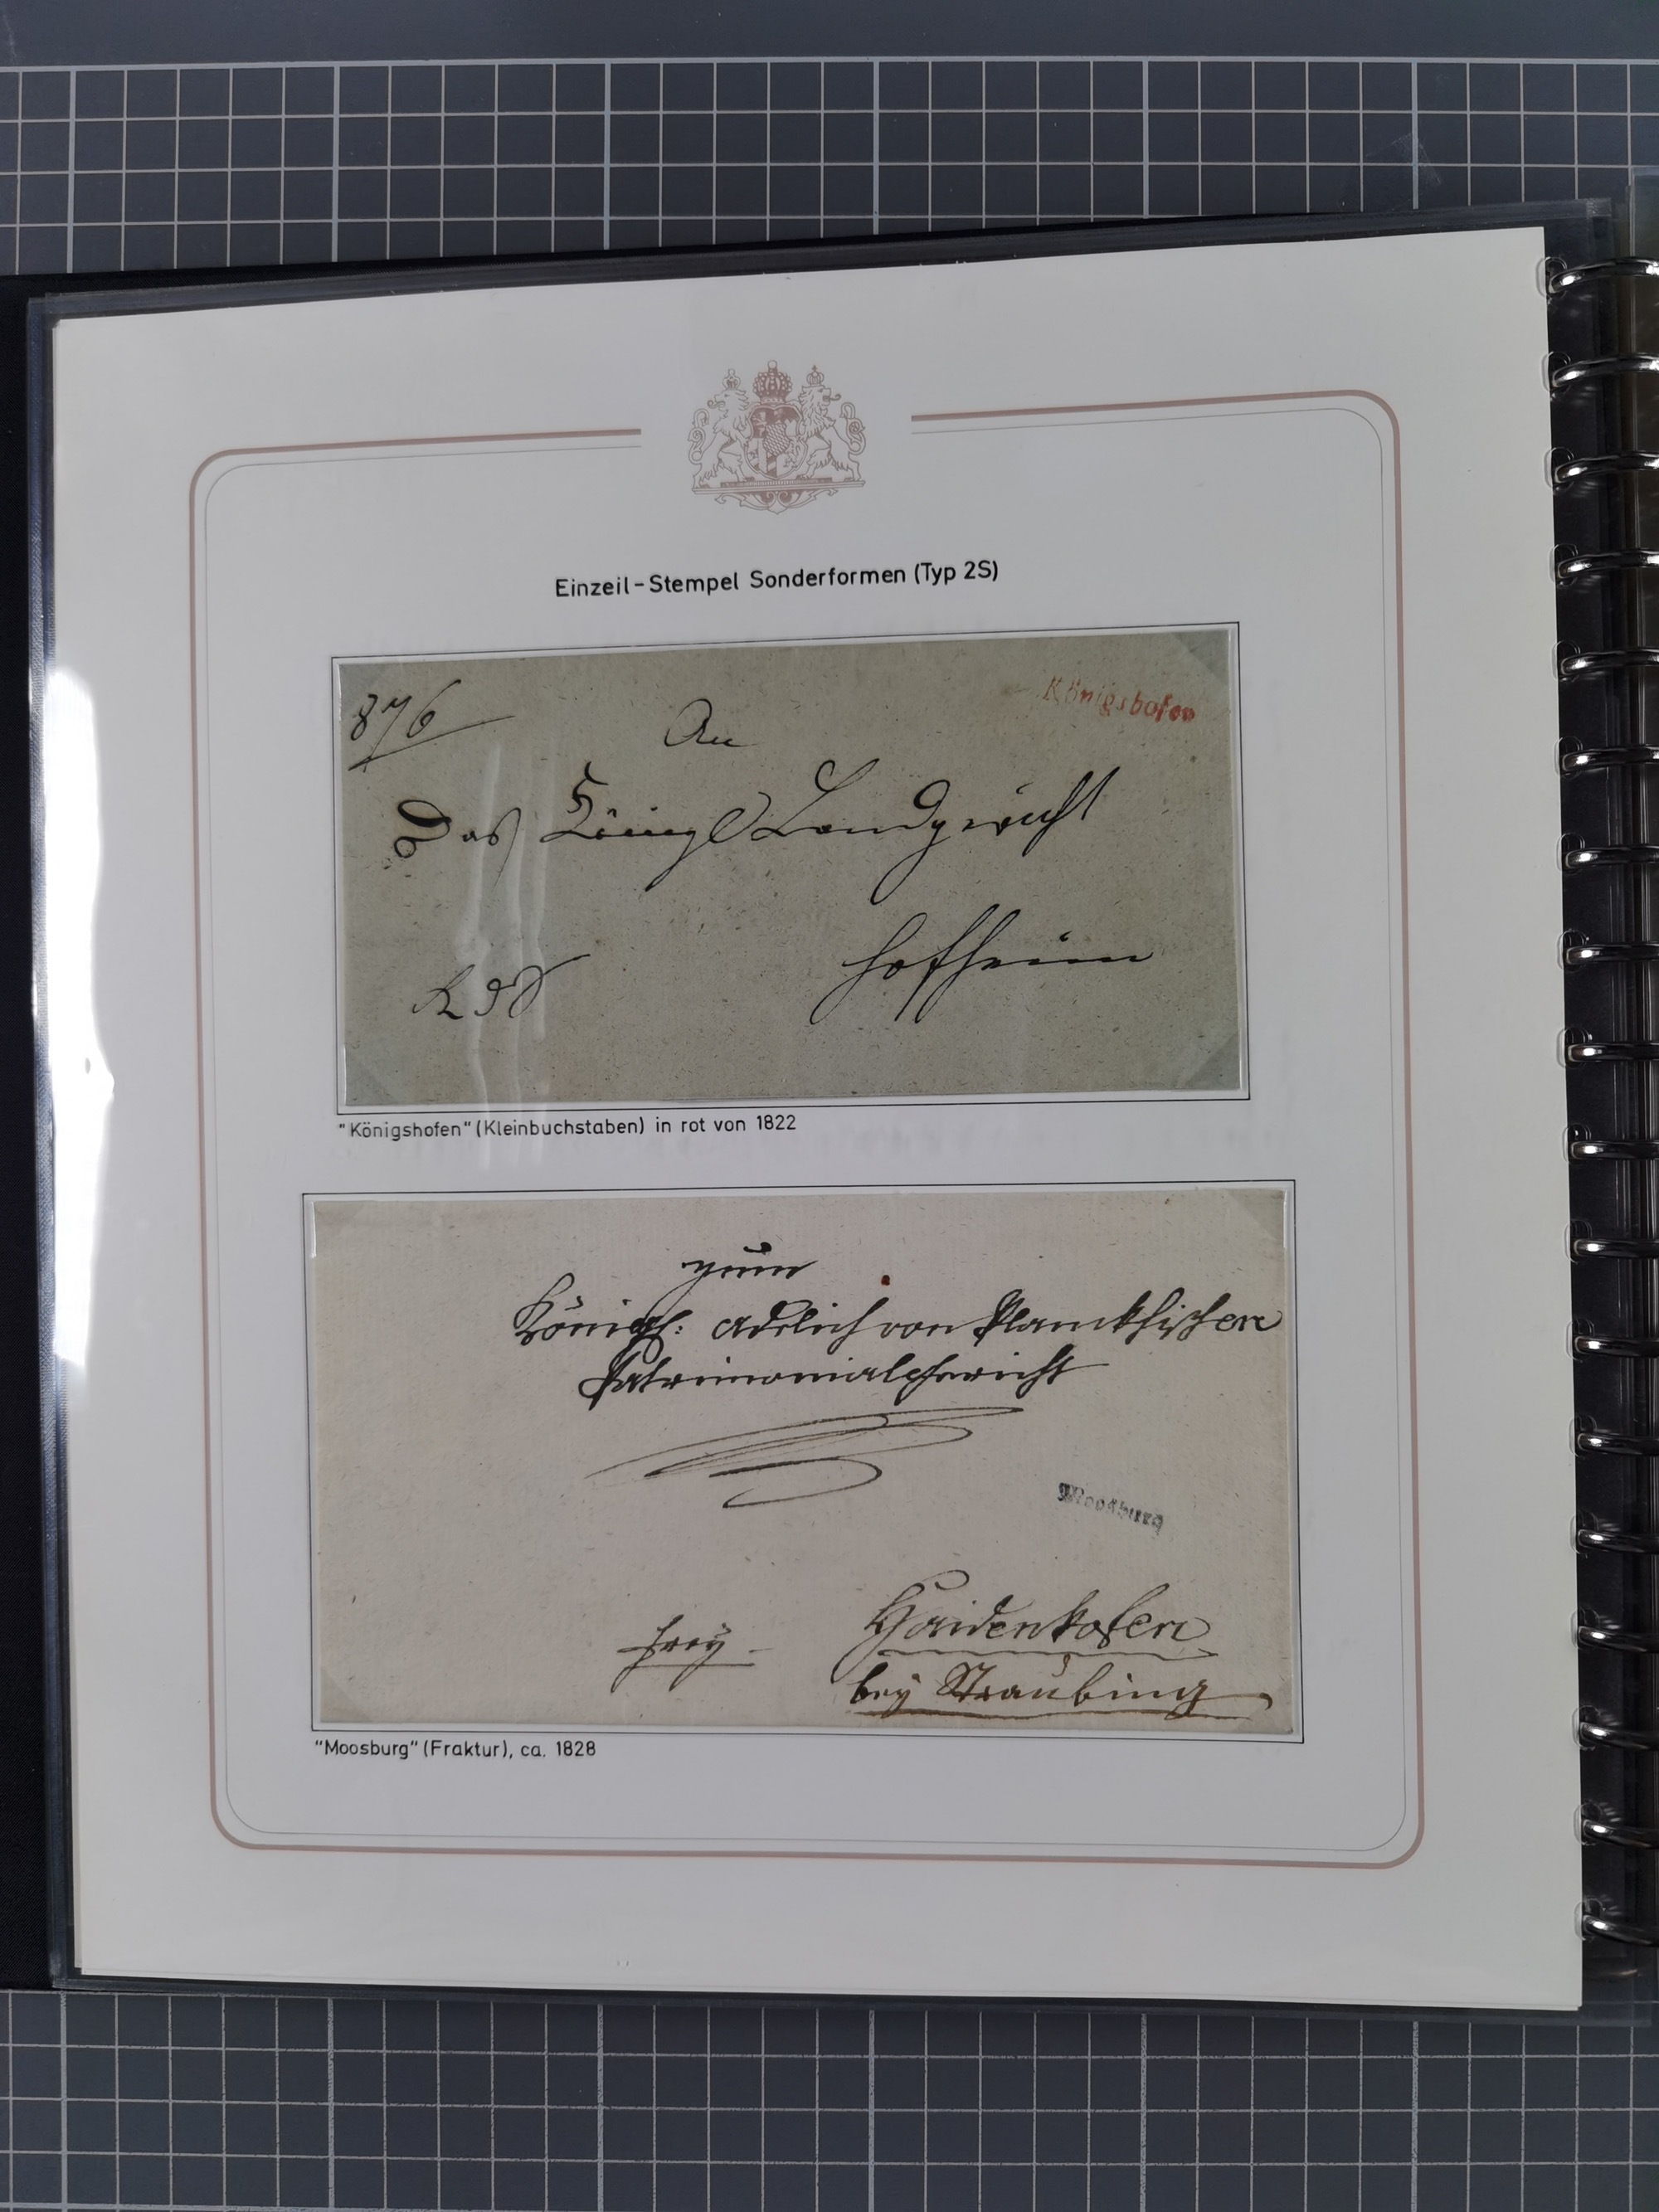 Einzeil-Stempel Sonderformen (Typ 2S)
876
Königshofen
An
Das Königl Landgericht
Hofheim
"Königshofen" (Kleinbuchstaben) in rot von 1822
zum
Königl: adelich von Plankischen
Patrimonialgericht
Moosburg
frey
Haidenkofen
bey Straubing
"Moosburg" (Fraktur), ca. 1828